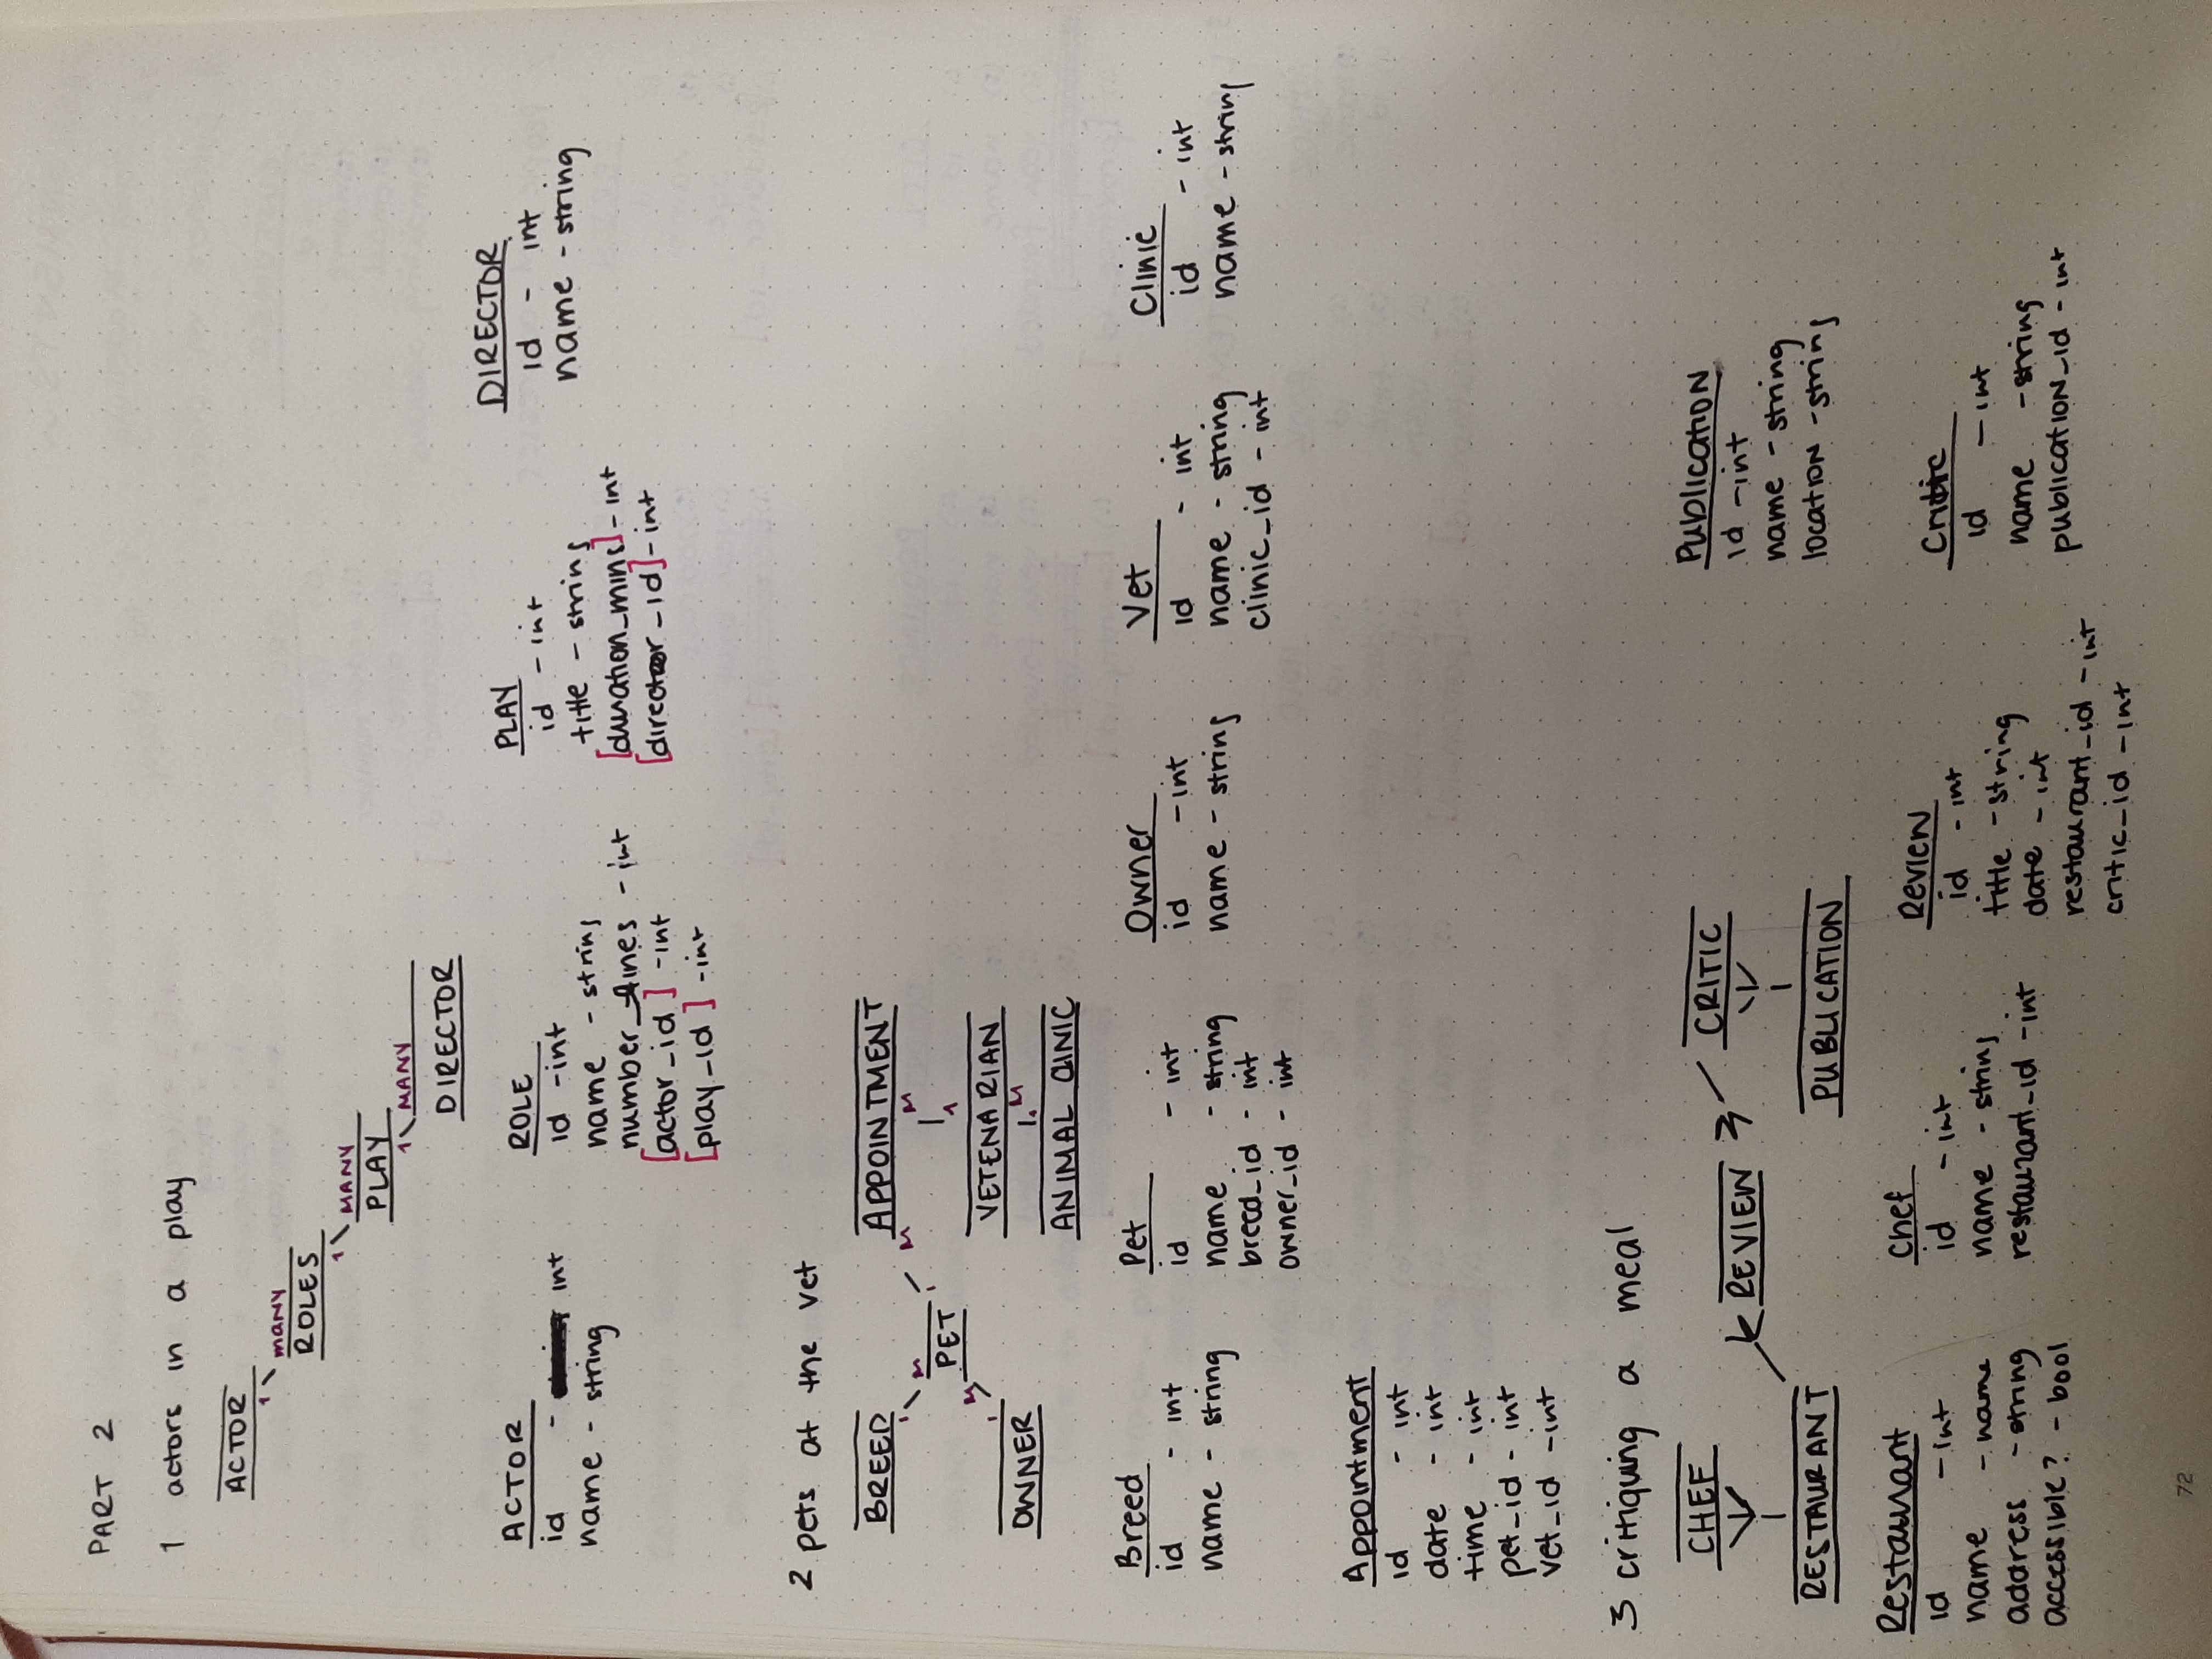 PART 2
1 actors in a play
ACTOR
1 MANY
ROLES
1 MANY
PLAY
1 MANY
DIRECTOR
ACTOR
id - int
name - string
ROLE
id - int
name - string
number_lines - int
[actor_id] - int
[play_id] - int
PLAY
id - int
title - string
[duration_mins] - int
[director_id] - int
DIRECTOR
id - int
name - string
2 pets at the vet
BREED
1 M
PET
1 M
APPOINTMENT
M
1
M
1
OWNER
VETENARIAN
M
1
ANIMAL CLINIC
Breed
id - int
name - string
Pet
id - int
name - string
breed_id - int
owner_id - int
Owner
id - int
name - string
Vet
id - int
name - string
clinic_id - int
Clinic
id - int
name - string
Appointment
id - int
date - int
time - int
pet_id - int
vet_id - int
3 critiquing a meal
CHEF
RESTAURANT
REVIEW
CRITIC
PUBLICATION
Publication
id - int
name - string
location - string
Restaurant
id - int
name - name
address - string
accessible? - bool
Chef
id - int
name - string
restaurant_id - int
Review
id - int
title - string
date - int
restaurant_id - int
critic_id - int
Critic
id - int
name - string
publication_id - int
72